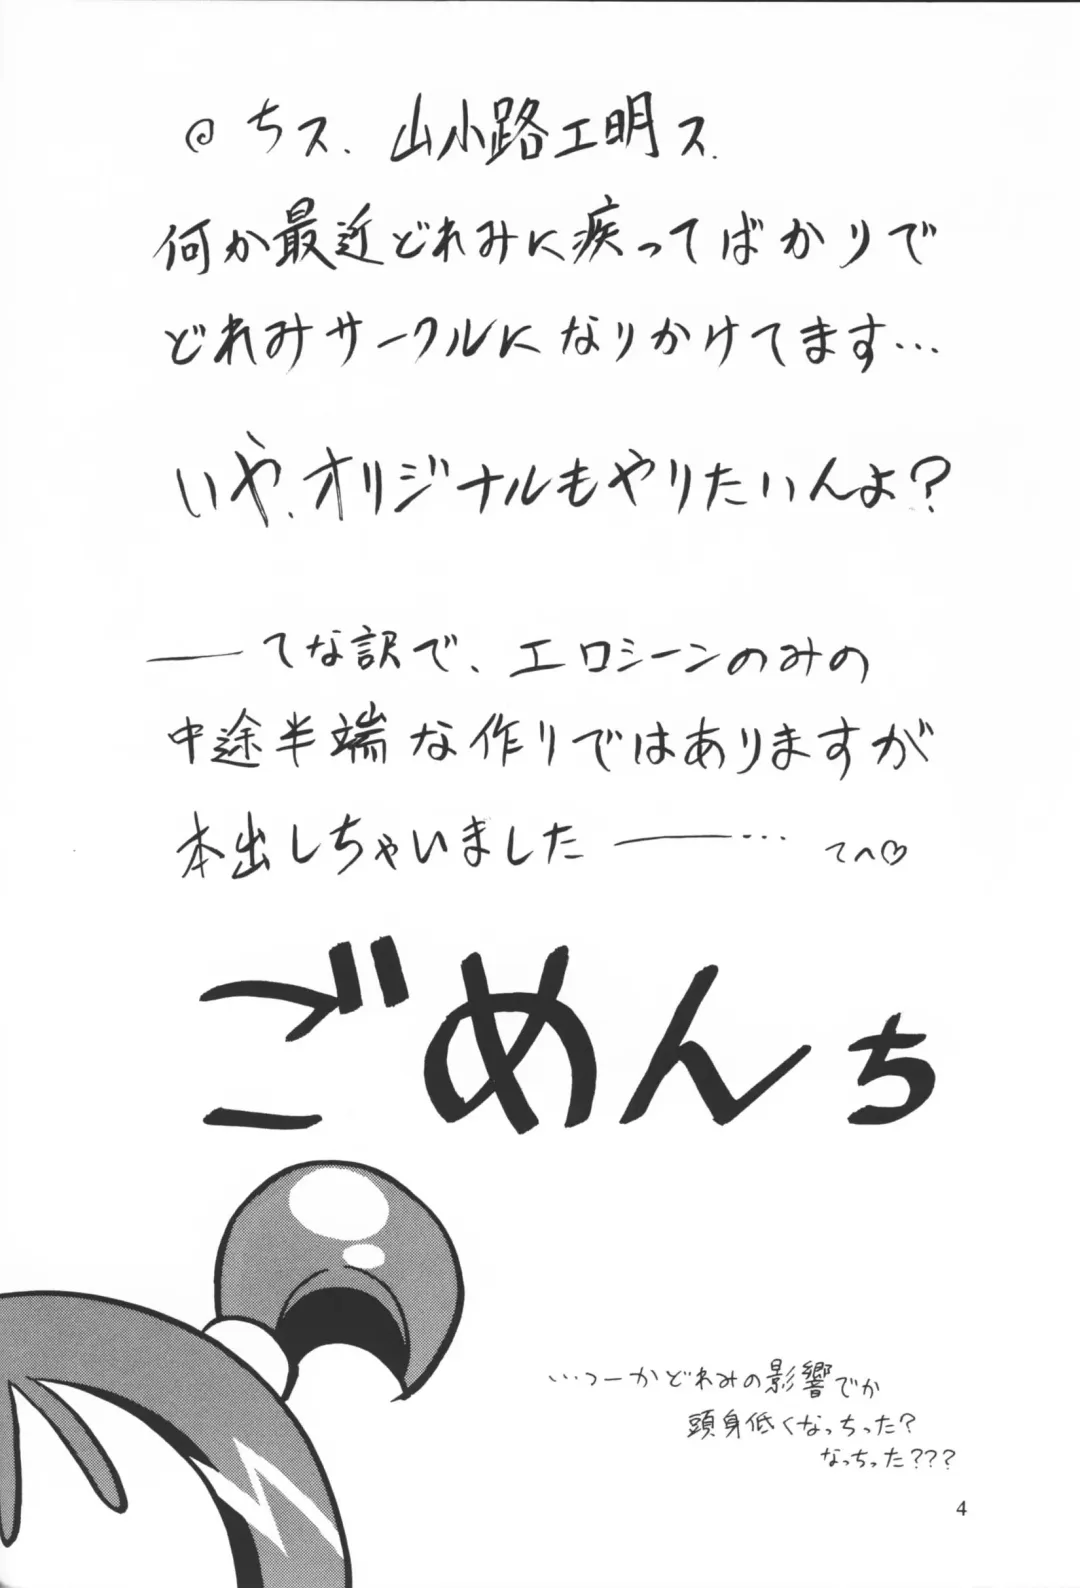 @ちス、山小路工明ス.
何か最近どれみに疾ってばかりで
どれみサークルになりかけてます…
いや、オリジナルもやりたいんよ?
——てな訳で、エロシーンのみの
中途半端な作りではありますが
本出しちゃいました——… てへ♡
ごめんち
…つーかどれみの影響でか
頭身低くなっちった?
なっちった???
4